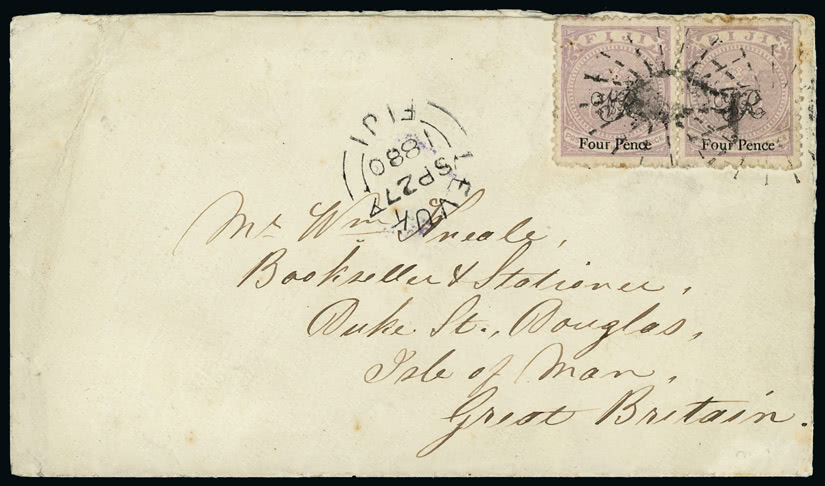 FIJI FIJI
Four Pence Four Pence
LEVUKA
SP 27
880
FIJI
Mr. Wm. Kneale,
Bookseller & Stationer,
Duke St., Douglas,
Isle of Man,
Great Britain.